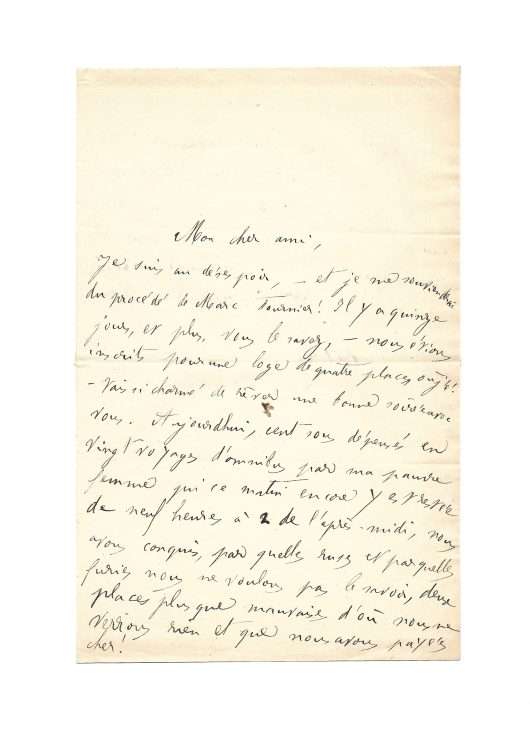 Mon cher ami,
Je suis au désespoir, – et je me souviendrai
du procédé de Marc Fournier! Il y a quinze
jours, et plus, vous le savez, – nous étions
inscrits pour une loge de quatre places
– si charmé de rêver une bonne soirée avec
vous. Aujourdhui, cent sous dépensés en
vingt voyages d'omnibus par ma pauvre
femme qui ce matin encore y est restée
de neuf heures à 2 de l'après-midi, nous
avons conquis, par quelles ruses et par quelles
furies nous ne voulons pas le savoir, deux
places plus que mauvaises d'où nous ne
verrons rien et que nous avons payées
cher!